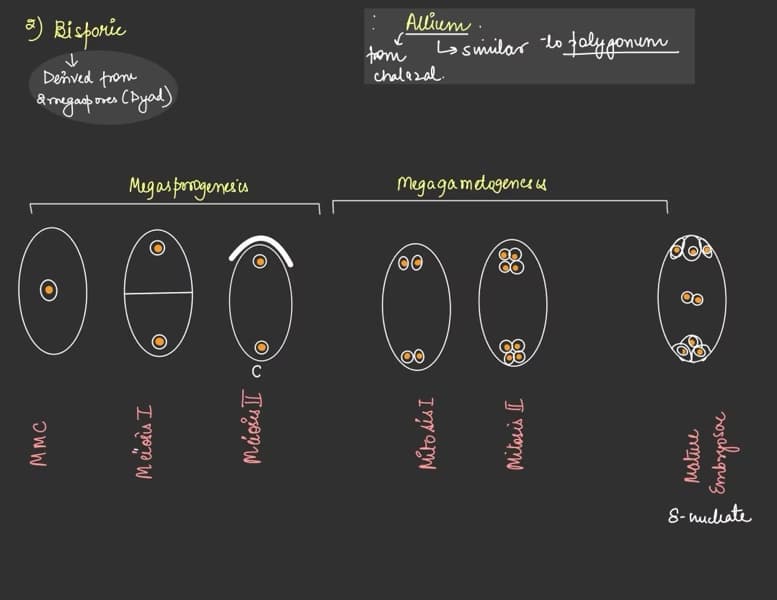 2) Bisporic
↓
Derived from
2 megaspores (Dyad)
: Allium.
↳ similar to polygonum
from
chalazal.
Megasporogenesis
Megagametogenesis
C
MMC
Meiosis I
Meiosis II
Mitosis I
Mitosis II
Mature
Embryosac
8-nucleate